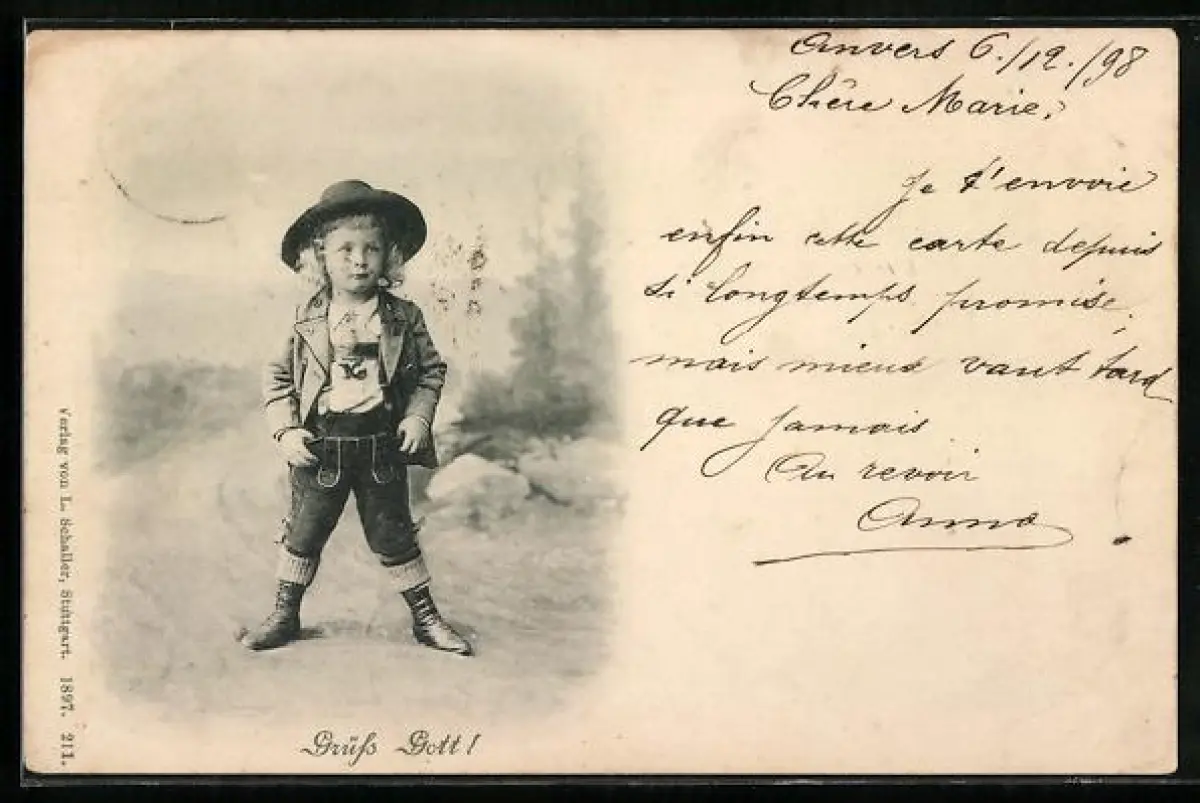 Anvers 6./12./98
Chère Marie,
Je t'envoie
enfin cette carte depuis
si longtemps promise,
mais mieux vaut tard
que jamais
Au revoir
Anna
Grüß Gott!
Verlag von L. Schaller, Stuttgart. 1897. 211.